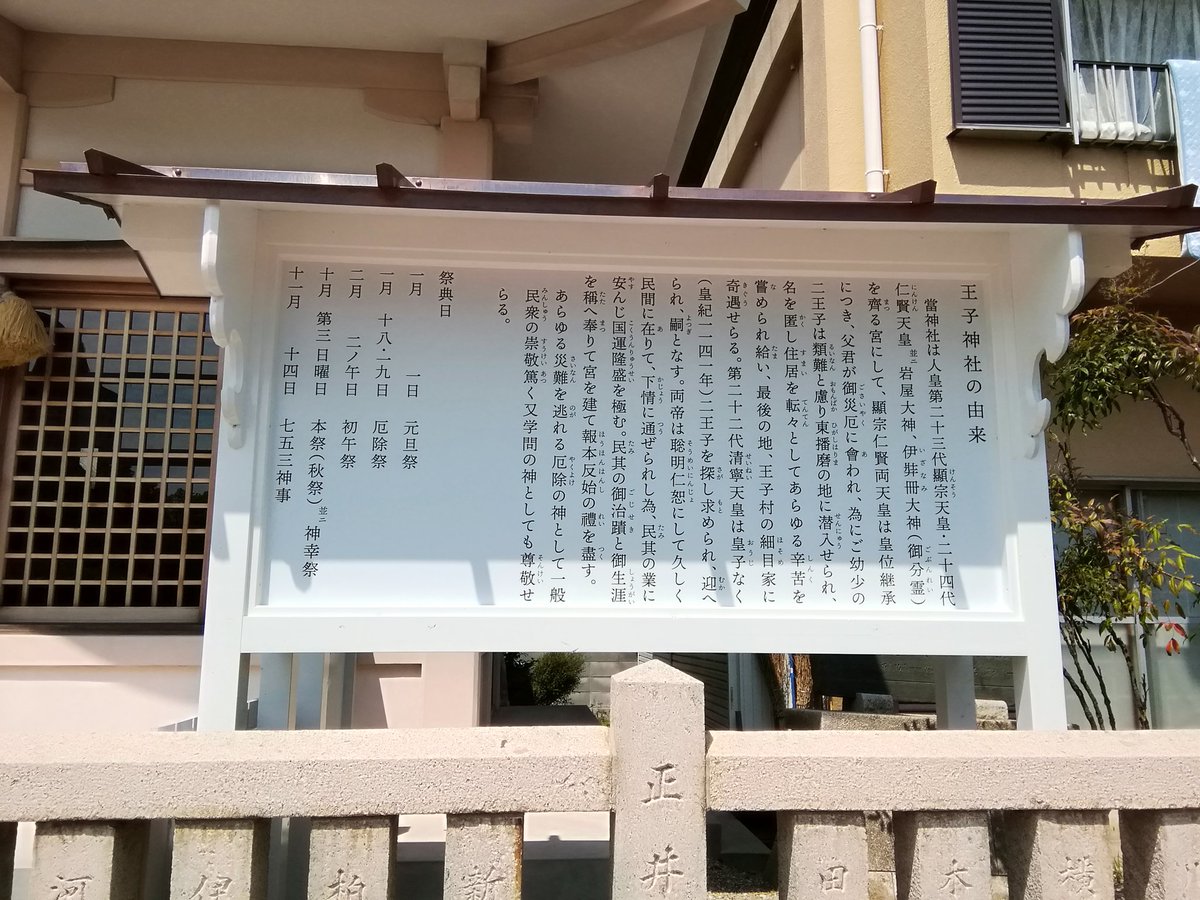 王子神社の由来
當神社は人皇第二十三代顯宗天皇・二十四代
仁賢天皇 並ニ 岩屋大神、伊弉冊大神(御分霊)
を齊る宮にして、顯宗仁賢両天皇は皇位継承
につき、父君が御災厄に會われ、為にご幼少の
二王子は類難と慮り東播磨の地に潜入せられ、
名を匿し住居を転々としてあらゆる辛苦を
嘗められ給い、最後の地、王子村の細目家に
奇遇せらる。第二十二代清寧天皇は皇子なく
(皇紀一一四一年)二王子を探し求められ、迎へ
られ、嗣となす。両帝は聡明仁恕にして久しく
民間に在りて、下情に通ぜられし為、民其の業に
安んじ国運隆盛を極む。民其の御治蹟と御生涯
を稱へ奉りて宮を建て報本反始の禮を盡す。
あらゆる災難を逃れる厄除の神として一般
民衆の崇敬篤く又学問の神としても尊敬せ
らる。
祭典日
一月 一日 元旦祭
一月 十八・十九日 厄除祭
二月 二ノ午日 初午祭
十月 第三日曜日 本祭(秋祭)並ニ 神幸祭
十一月 十四日 七五三神事
正井
河
伊
柏
新
田
本
横